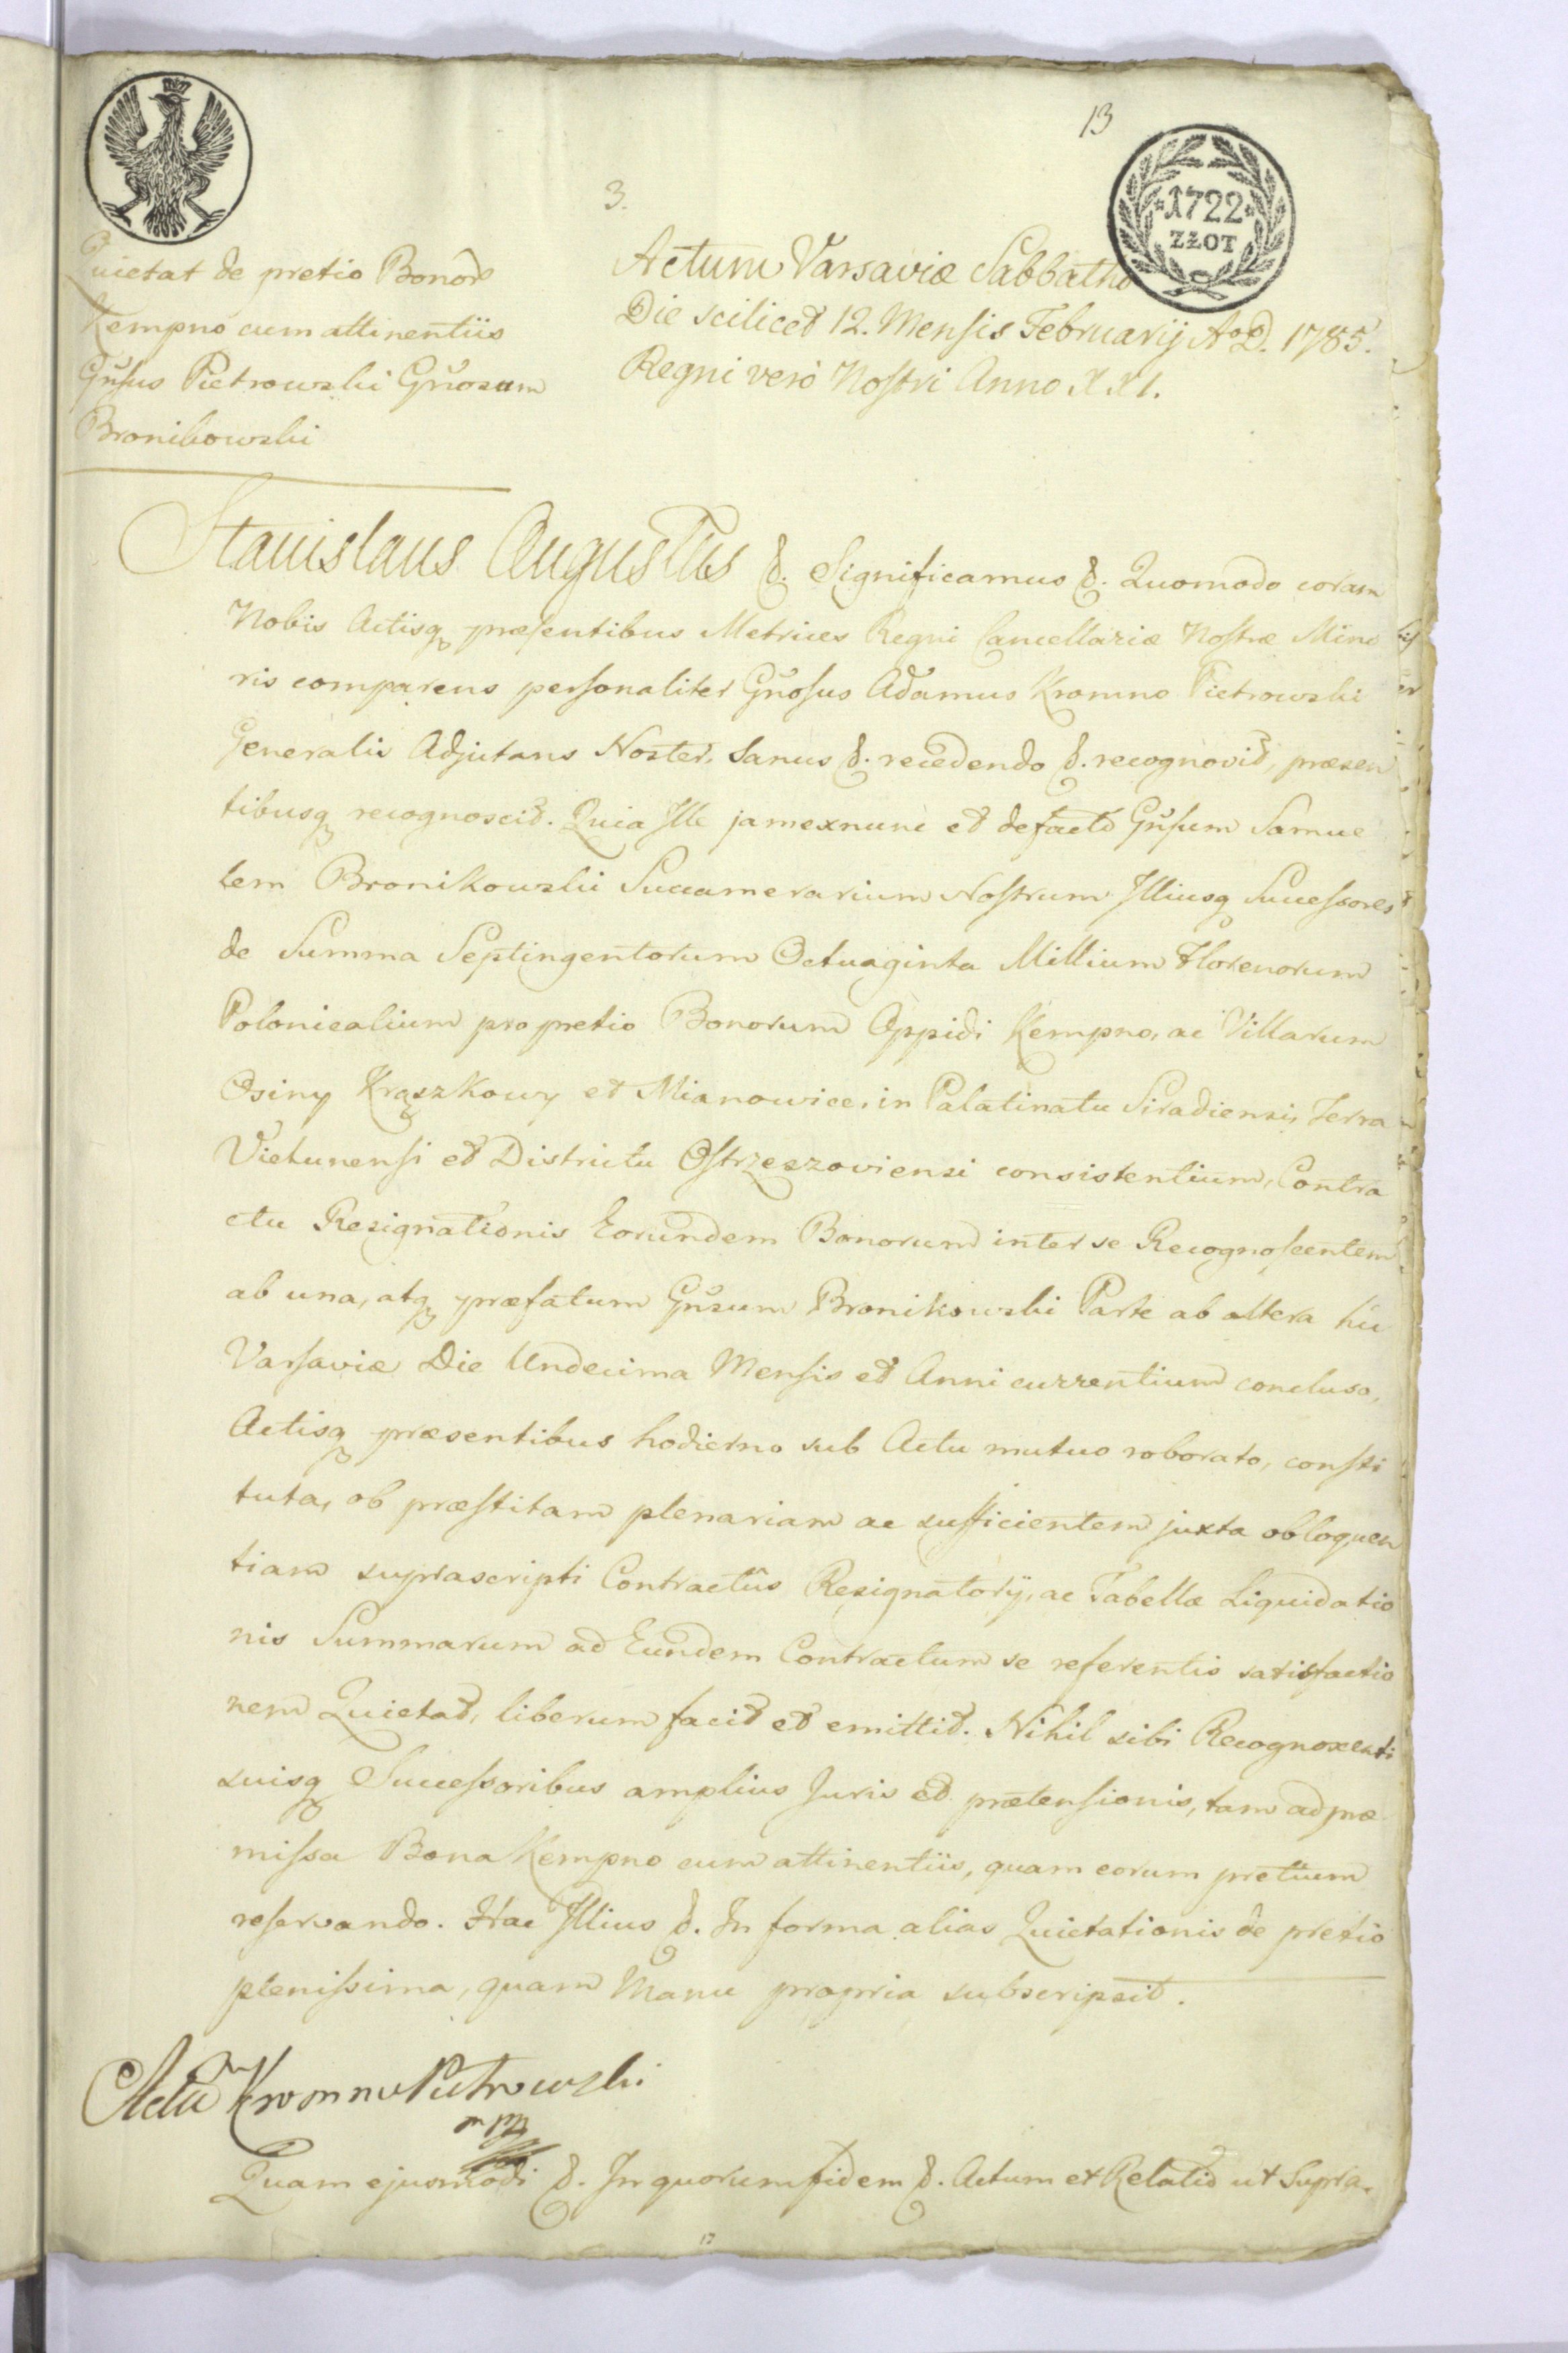 13
1722
ZŁOT
3.
Quietat de pretio Bonor
Kempno cum attinentiis
Gnsus Pietrowski Gnosum
Bronikowski
Actum Varsaviæ Sabbatho
Die scilicet 12. Mensis Februarij AoD. 1785.
Regni vero Nostri Anno XXI.
Stanislaus Augustus &. Significamus &. Quomodo coram
Nobis Actisq præsentibus Metrices Regni Cancellariæ Nostræ Mino
ris comparens personaliter Gnosus Adamus Kromno Pietrowski
Generalis Adjutans Noster, Sanus &. recedendo &. recognovit, præsen
tibusq recognoscit. Quia Ille jamexnunc et defacto Gnsum Samue
lem Bronikowski Succamerarium Nostrum Illiusq Successores
de Summa Septingentorum Octuaginta Millium Florenorum
Polonicalium pro pretio Bonorum Oppidi Kempno, ac Villarum
Osiny Krąszkowy et Mianowice, in Palatinatu Siradiensi, Terra
Vielunensi et Districtu Ostrzeszoviensi consistentium, Contra
ctu Resignationis Eorundem Bonorum inter se Recognoscentem
ab una, atq præfatum Gnsum Bronikowski Parte ab altera hic
Varsaviæ Die Undecima Mensis et Anni currentium concluso,
Actisq præsentibus hodierno sub Actu mutuo roborato, consti
tuta, ob præstitam plenariam ac sufficientem juxta obloquen
tiam suprascripti Contractûs Resignatorij, ac Tabellæ Liquidatio
nis Summarum ad Eundem Contractum se referentis satisfactio
nem Quietat, liberum facit et emittit. Nihil sibi Recognoscenti
suisq Successoribus amplius Juris et prætensionis, tam ad præ
missa Bona Kempno cum attinentiis, quam eorum pretium
reservando. Hac Illius &. In forma alias Quietationis de pretio
plenissima, quam Manu propria subscripsit.
Kromno Pietrowski
Quam ejusmodi &. In quorum fidem &. Actum et Relatio ut Supra.
17